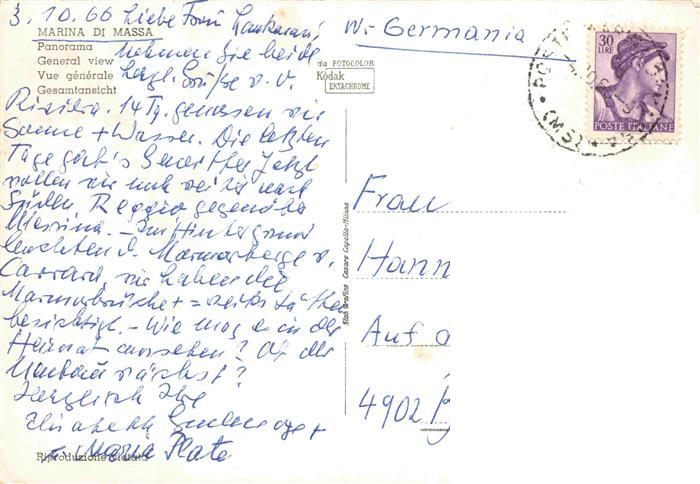 3.10.66 Liebe Frau
MARINA DI MASSA
Panorama
General view
Vue générale
Gesamtansicht
nehmen Sie beide
herzl. Grüße v. d.
Riviera. 14 Tg. genossen wir
Sonne + Wasser. Die letzten
Tage gab's Gewitter. Jetzt
wollen wir noch weiter nach
Süden Reggio gegenüber
Messina. - Im Hintergrund
leuchten d. Marmorberge v.
Carrara, wir haben die
Marmorbrüche +
besichtigt. - Wie mag es in der
Heimat aussehen? Ob der
Umbau wächst?
Herzlich Ihre
Elisabeth +
Maria Plate
Riproduzione vietata
da FOTOCOLOR
Kodak
EKTACHROME
W.-Germania
30
LIRE
POSTE ITALIANE
(MS)
Frau
Hann
Auf d
4902